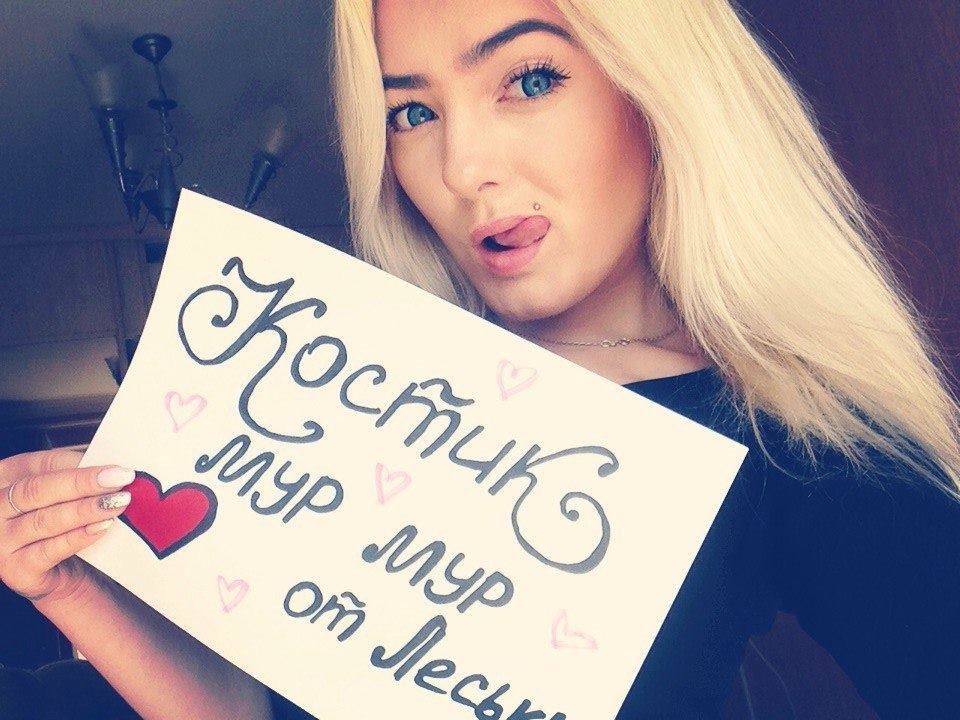 Костик
мур мур
от Леськ